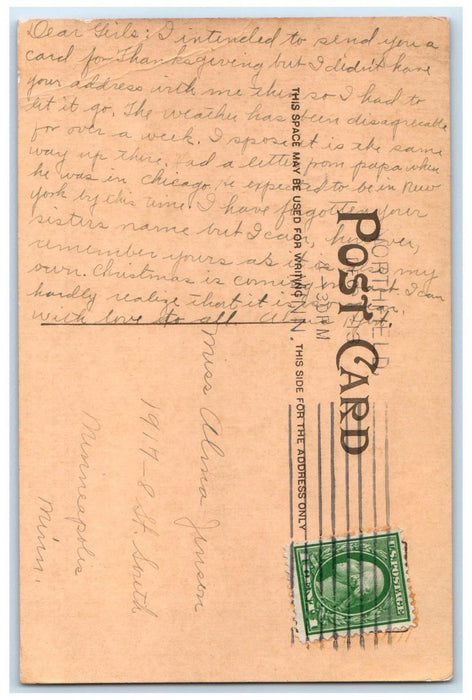 Dear Girls: I intended to send you a
card for Thanksgiving but I didn't have
your address with me then so I had to
let it go. The weather has been disagreeable
for over a week. I spose it is the same
way up there. Had a letter from papa when
he was in Chicago, he expected to be in New
York by this time. I have forgotten your
sisters name but I can, however,
remember yours as it is my
own. Christmas is coming I can
hardly realize that it is
with love to all
POST CARD
THIS SPACE MAY BE USED FOR WRITING
THIS SIDE FOR THE ADDRESS ONLY
NORTHFIELD
30 PM
MINN.
Miss Alma Jenson
1917-8 St. South
Minneapolis
Minn.
U.S. POSTAGE
1 CENT 1